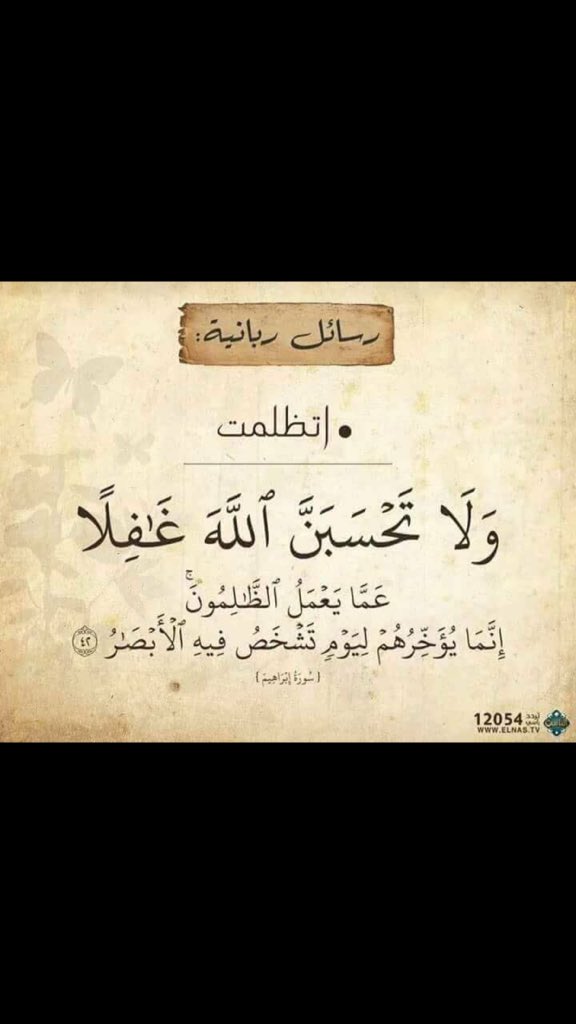 رسائل ربانية:
• إتظلمت
وَلَا تَحْسَبَنَّ ٱللَّهَ غَـٰفِلًا
عَمَّا يَعْمَلُ ٱلظَّـٰلِمُونَ ۚ
إِنَّمَا يُؤَخِّرُهُمْ لِيَوْمٍ تَشْخَصُ فِيهِ ٱلْأَبْصَـٰرُ ٤٢
{ سُورَةُ إِبْرَاهِيمَ }
12054
WWW.ELNAS.TV